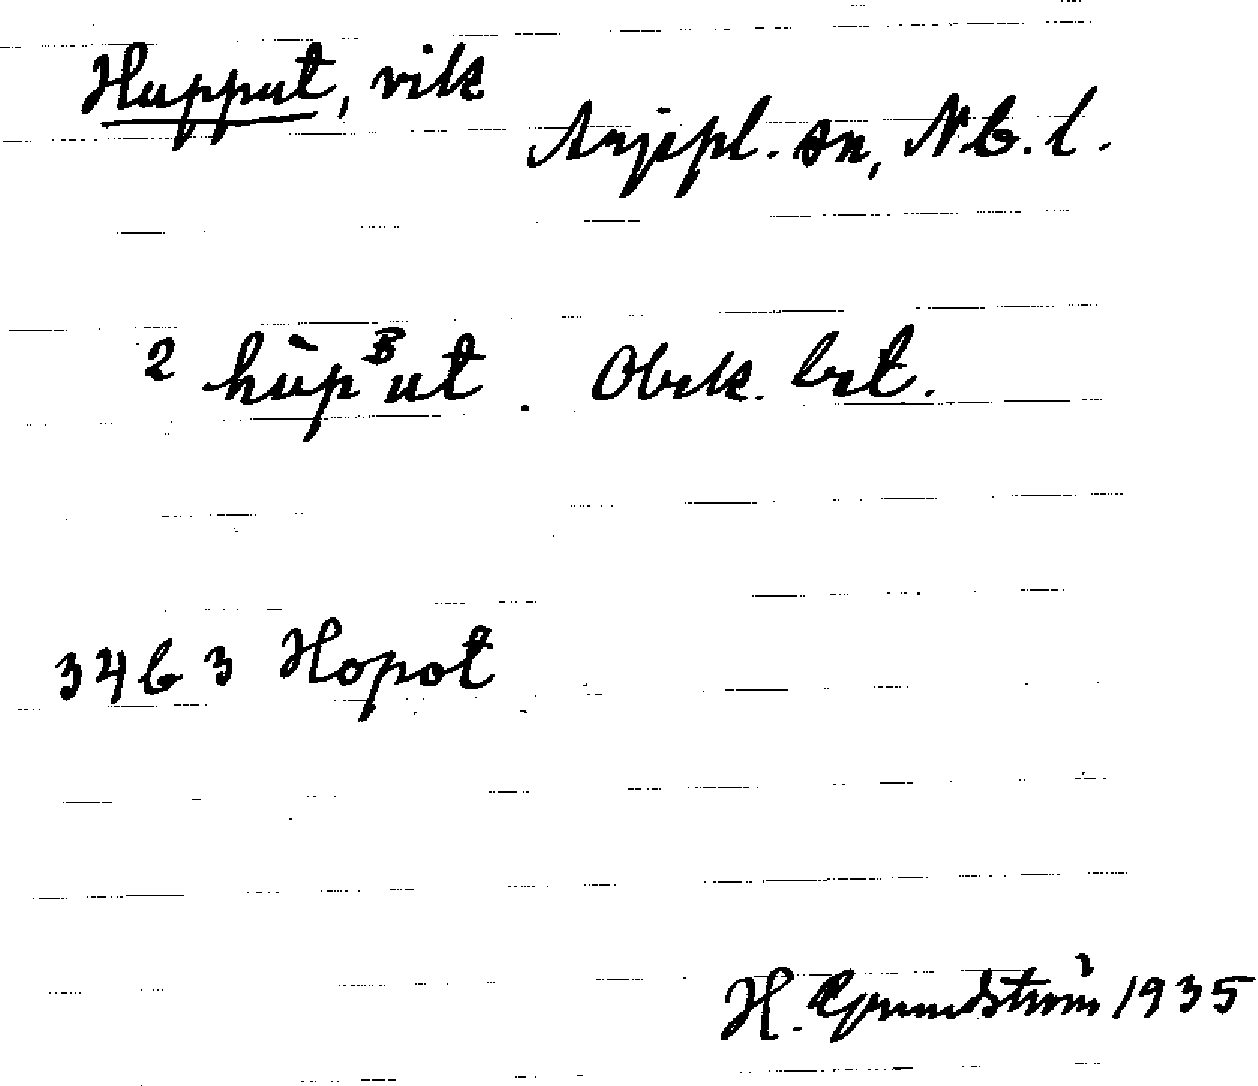 Hupput, vik
Arjepl. sn, Nb. l.
2 hùpᴮut. Obek. best.
3463 Hopot
H. Grundström 1935